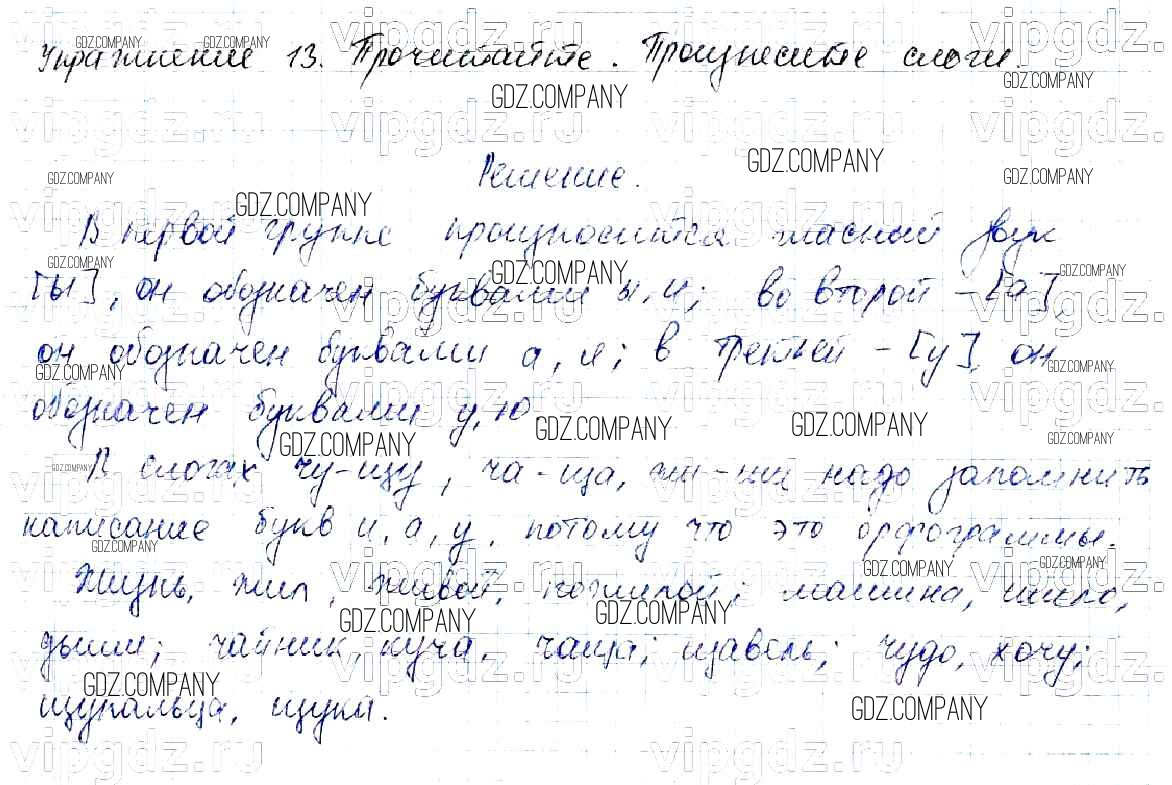 Упражнение 13. Прочитайте. Произнесите слоги.
Решение.
В первой группе произносится гласный звук
[ы], он обозначен буквами ы, и; во второй - [а],
он обозначен буквами а, я; в третьей - [у], он
обозначен буквами у, ю.
В слогах чу-щу, ча-ща, жи-ши надо запомнить
написание букв и, а, у, потому что это орфограммы.
Жизнь, жил, живот, пожилой; машина, шило,
дыши; чайник, куча, чаща; щавель; чудо, хочу;
щупальца, щуки.